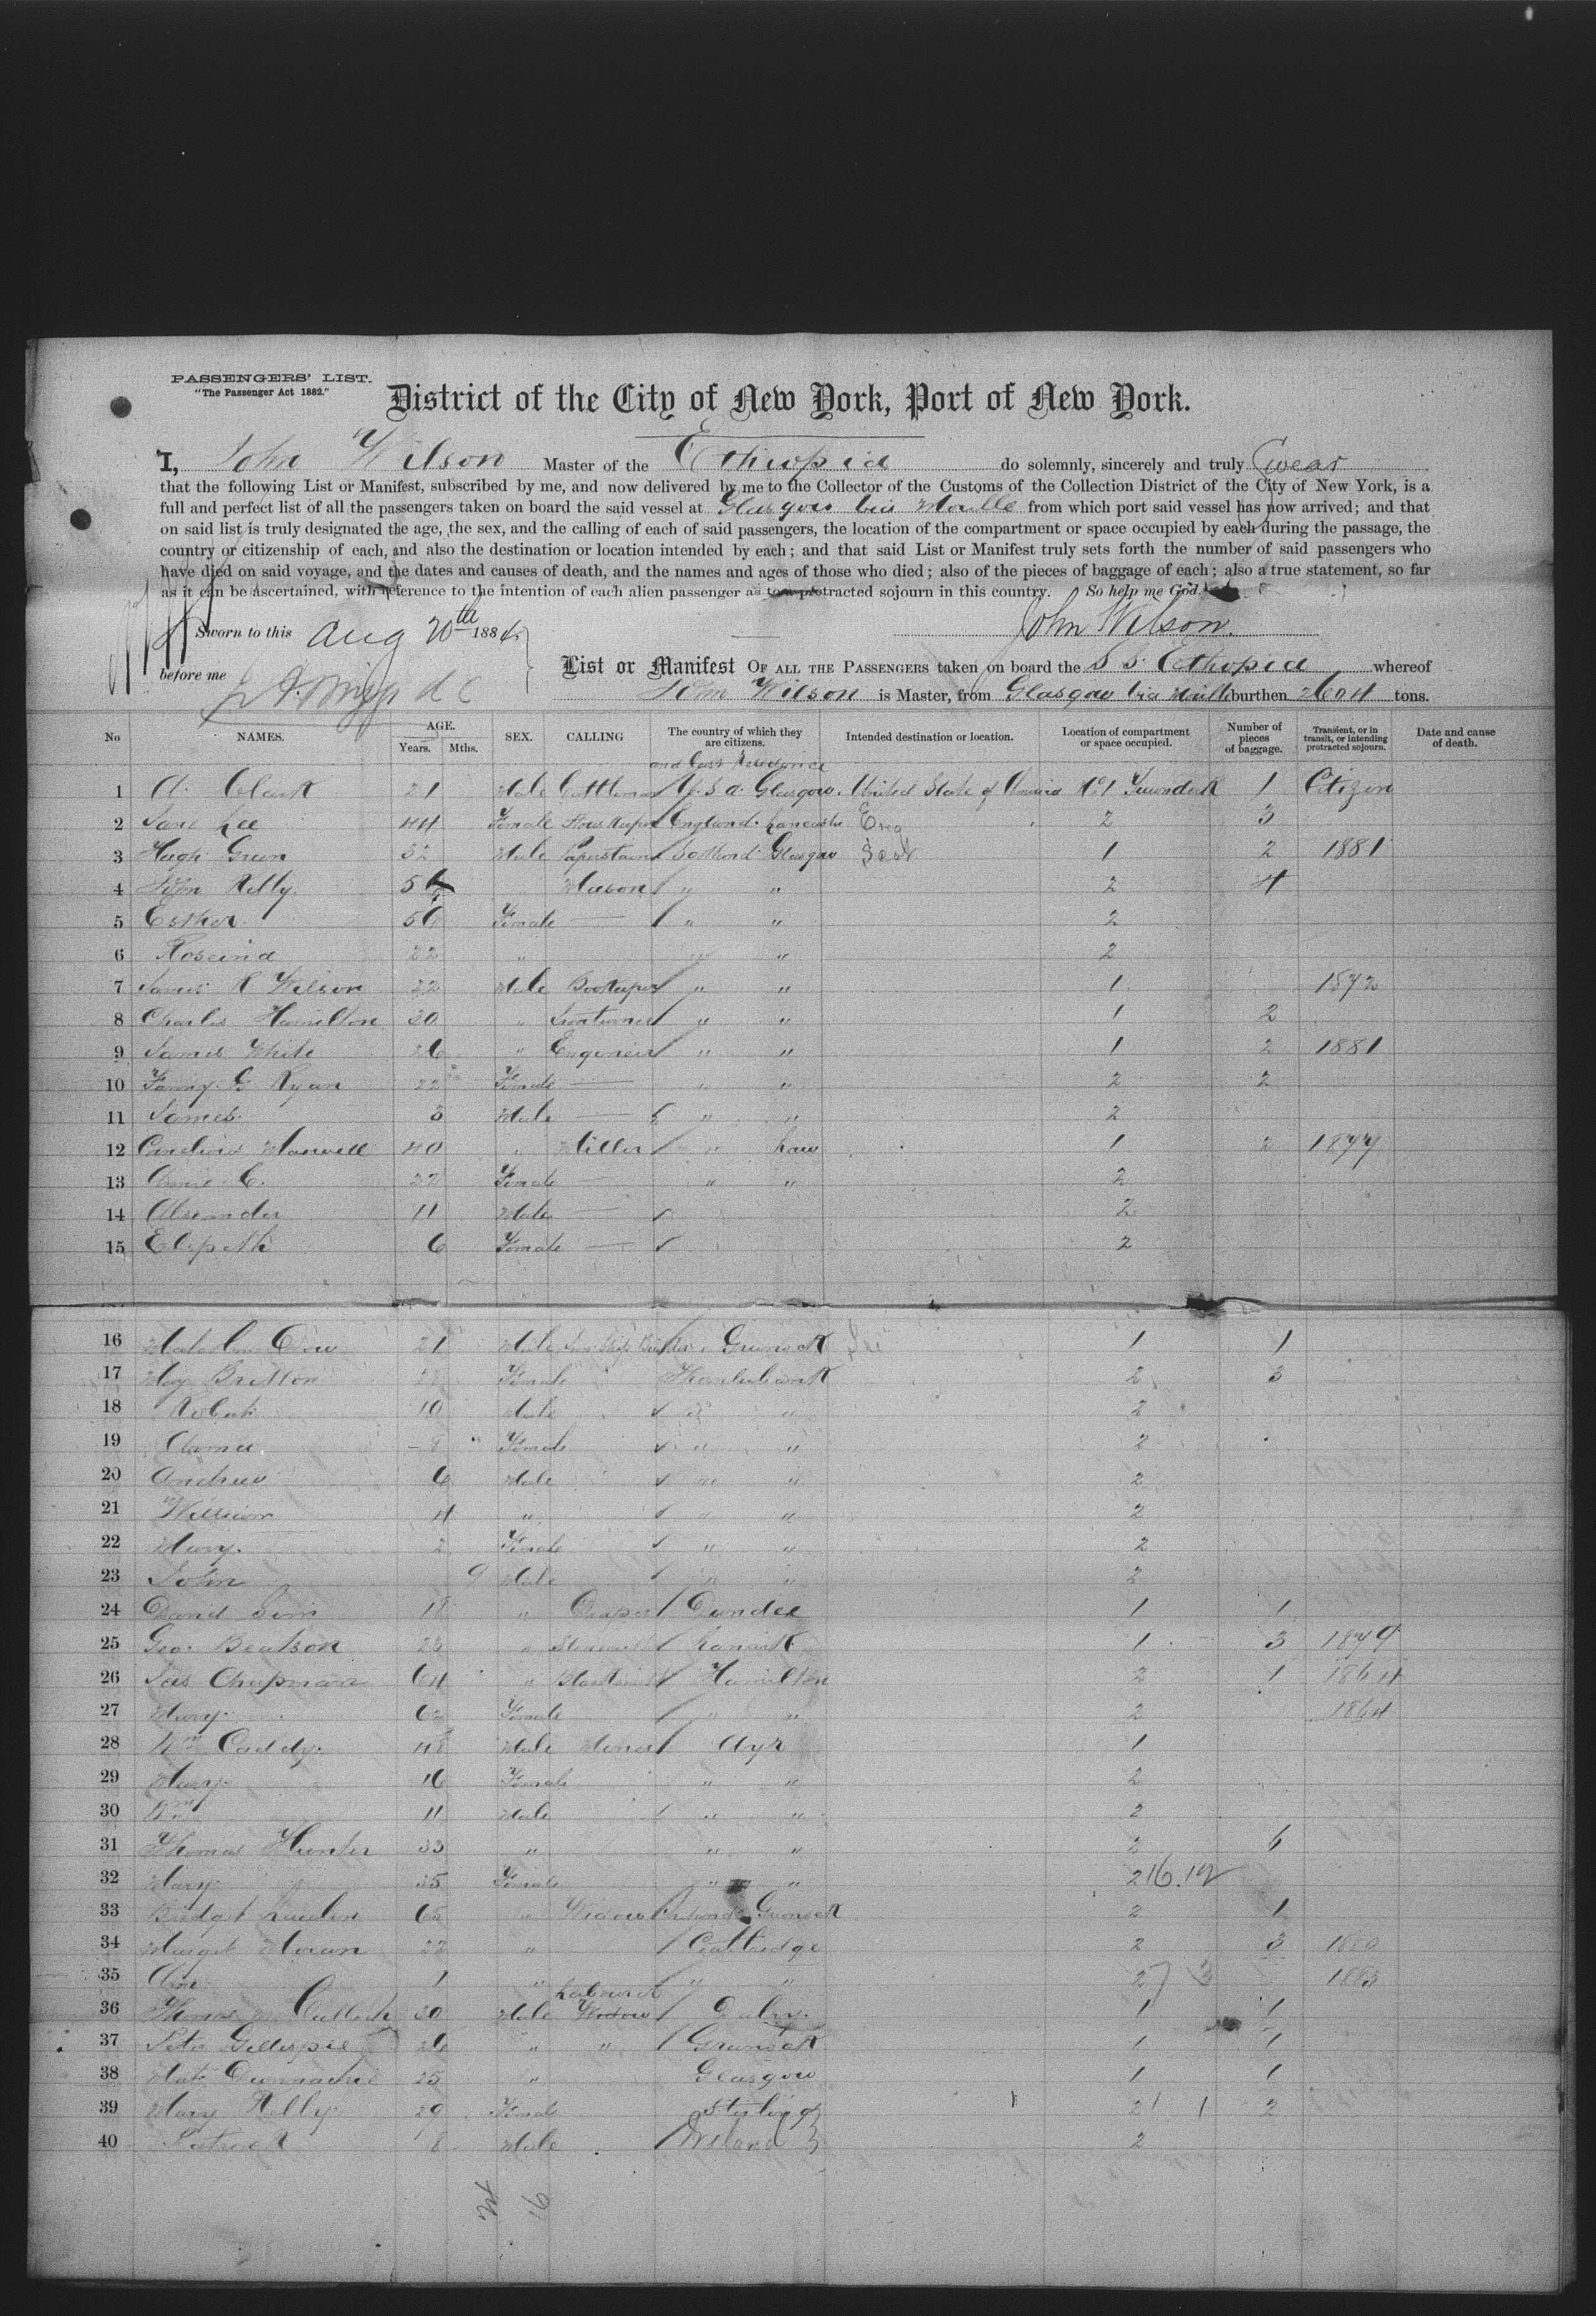 PASSENGERS' LIST.
"The Passenger Act 1882."
District of the City of New York, Port of New York.
I, John Wilson Master of the Ethiopia do solemnly, sincerely and truly Swear
that the following List or Manifest, subscribed by me, and now delivered by me to the Collector of the Customs of the Collection District of the City of New York, is a
full and perfect list of all the passengers taken on board the said vessel at Glasgow via Moville from which port said vessel has now arrived; and that
on said list is truly designated the age, the sex, and the calling of each of said passengers, the location of the compartment or space occupied by each during the passage, the
country or citizenship of each, and also the destination or location intended by each; and that said List or Manifest truly sets forth the number of said passengers who
have died on said voyage, and the dates and causes of death, and the names and ages of those who died; also of the pieces of baggage of each; also a true statement, so far
as it can be ascertained, with reference to the intention of each alien passenger as to a protracted sojourn in this country. So help me God.
Sworn to this Aug 20th 1884 John Wilson.
before me
List or Manifest OF ALL THE PASSENGERS taken on board the S S. Ethiopia whereof
John Wilson is Master, from Glasgow via Moville burthen 2604 tons.
No NAMES. AGE. Years. Mths. SEX. CALLING The country of which they are citizens. and Last Residence Intended destination or location. Location of compartment or space occupied. Number of pieces of baggage. Transient, or in transit, or intending protracted sojourn. Date and cause of death.
1 A. Clark 21 Male Cattleman U.S.A. Glasgow. United State of America No 1 1 Citizen
2 Jane Lee 44 Female England Eng 2 3
3 Hugh Green 32 Male Scotland Glasgow Scot 1 2 1881
4 John Kelly 56 " Mason " " 2 4
5 Esther 56 Female — " " 2
6 22 " " " 2
7 James R Wilson 22 Male Bookeeper " " 1 1872
8 Charles Hamilton 30 " " " 1 2
9 James White 26 " Engineer " " 1 2 1881
10 Fanny G Ryan 22 Female — " " 2 2
11 James 3 Male — " " 2
12 Maxwell 40 " Miller " 1 2 1877
13 Annie C. 32 Female — " " 2
14 Alexander 11 Male — 2
15 Elspeth 6 Female — 2
16 21 Male Greenock 1 1
17 Britton Female 2 3
18 Robert 10 Male " " 2
19 Female " " 2
20 Andrew 6 Male " " 2
21 William 4 " " " 2
22 Mary. 2 Female " " 2
23 John 9 Male " " 2
24 David Sim 18 " Draper Dundee 1 1
25 Geo. Beatson " Lanark 1 3 1879
26 Jas Chapman 64 " Hamilton 2 1 1864
27 Mary. 62 Female " " 2 1864
28 Wm Caddy. 48 Male Miner Ayr 1
29 Mary 16 Female " " 2
30 Wm 11 Male " " 2
31 Thomas Hunter 33 " " " 2 6
32 Mary 35 Female " " 2
33 65 " Widow Ireland Greenock 2 1
34 Margt Moran 22 " Coatbridge 2 3 1880
35 Ann 1 " " " 2 1883
36 Thomas McCulloch 30 Male Labourer 1 1
37 Peter Gillespie 26 " " Greenock 1 1
38 25 " Glasgow 1 1
39 Mary Kelly 29 Female Sterling 2 2
40 Patrick 8 Male Ireland 2